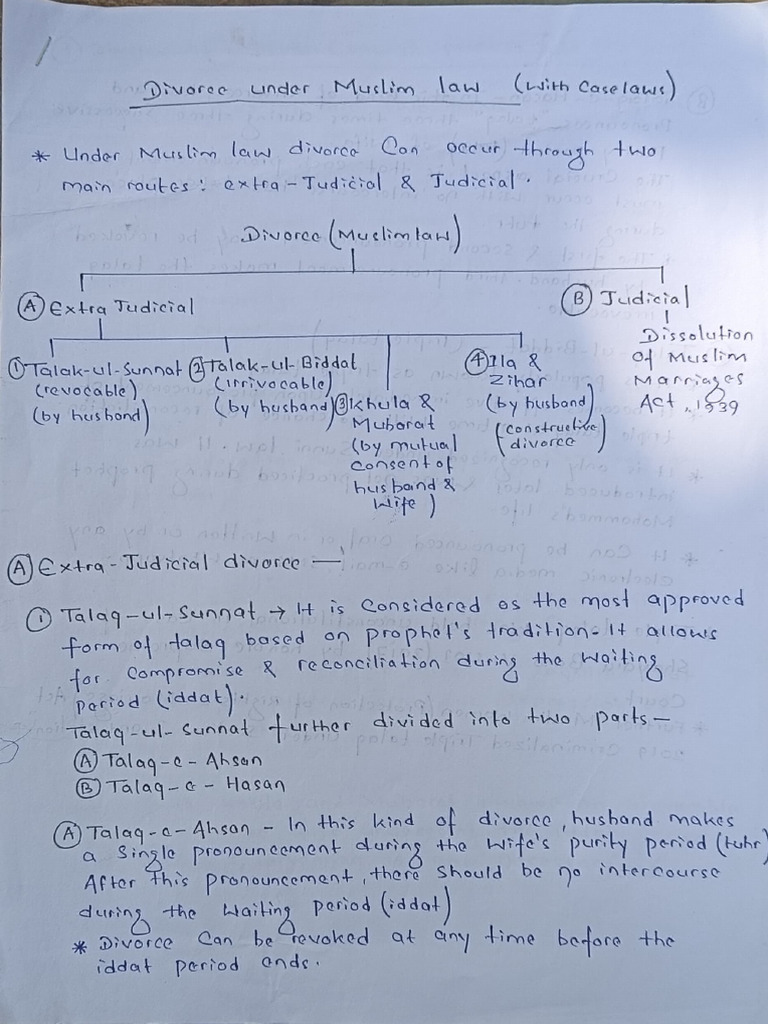 Divorce under Muslim law (with Case laws)
* Under Muslim law divorce Can occur through two
main routes: extra-Judicial & Judicial.
Divorce (Muslim law)
Ⓐ Extra Judicial
Ⓑ Judicial
① Talak-ul-Sunnat
(revocable)
(by husband)
② Talak-ul-Biddat
(irrivocable)
(by husband)
③ Khula &
Mubarat
(by mutual
Consent of
husband &
Wife)
④ Ila &
Zihar
(by husband)
(constructive
divorce)
Dissolution
of Muslim
Marriages
Act, 1939
Ⓐ Extra-Judicial divorce —
① Talaq-ul-Sunnat → It is Considered as the most approved
form of talaq based on prophet's tradition. It allows
for compromise & reconciliation during the waiting
period (iddat).
Talaq-ul-Sunnat further divided into two parts—
Ⓐ Talaq-e-Ahsan
Ⓑ Talaq-e-Hasan
Ⓐ Talaq-e-Ahsan - In this kind of divorce, husband makes
a Single pronouncement during the wife's purity period (tuhr)
After this pronouncement, there should be no intercourse
during the waiting period (iddat)
* Divorce Can be revoked at any time before the
iddat period ends.